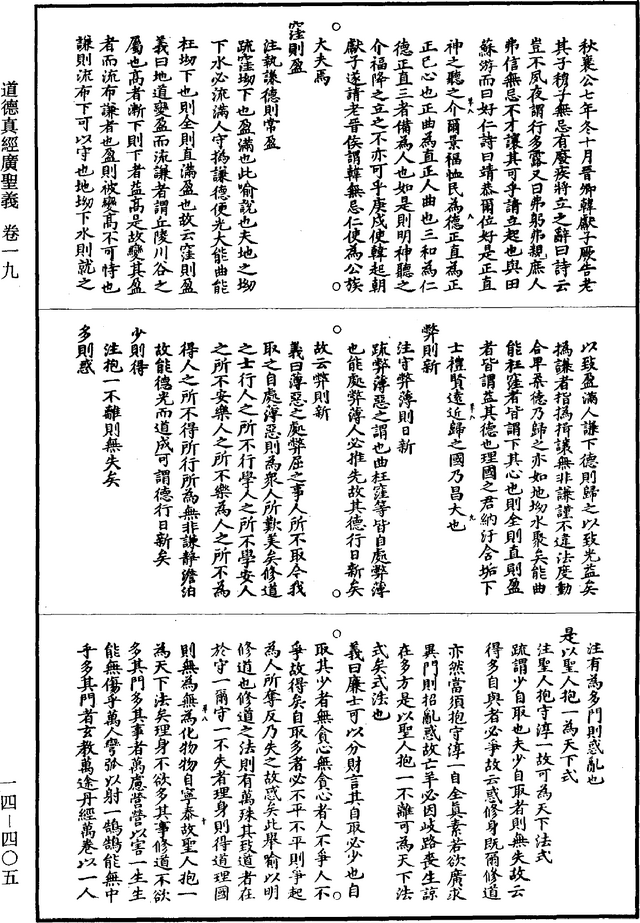 道德真經廣聖義　卷一九
一四—四〇五
秋襄公七年冬十月晉卿韓獻子厥告老
其子穆子無忌有廢疾將立之辭曰詩云
豈不夙夜謂行多露又曰弗躬弗親庶人
弗信無忌不才讓其可乎請立起也與田
蘇游而曰好仁詩曰靖恭爾位好是正直
神之聽之介爾景福恤民為德正直為正
正己心也正曲為直正人曲也三和為仁
德正直三者備為人也如是則明神聽之
介福降之立之不亦可乎庚戌使韓起朝
獻子遂請老晉侯謂韓無忌仁使為公族
大夫焉
窪則盈
注執謙德則常盈
疏窪坳下也盈滿也此喻說也夫地之坳
下水必流滿人守撝謙德便光大能曲能
枉坳下也則全則直滿盈也故云窪則盈
義曰地道變盈而流謙者謂丘陵川谷之
屬也高者漸下則下者益高是故變其盈
者而流布謙者也盈則被變高不可恃也
謙則流布下可以守也地坳下水則就之
以致盈滿人謙下德則歸之以致光益矣
撝謙者指撝揖讓無非謙謹不違法度動
合卑柔德乃歸之亦如地坳水聚矣能曲
能枉窪者皆謂下其心也則全則直則盈
者皆謂益其德也理國之君納汙含垢下
士禮賢遠近歸之國乃昌大也
弊則新
注守弊薄則日新
疏弊薄惡之謂也曲枉窪等皆自處弊薄
也能處弊薄人必推先故其德行日新矣
故云弊則新
義曰薄惡之處弊屈之事人所不取今我
取之自處薄惡則為衆人所歎美矣修道
之士行人之所不行學人之所不學安人
之所不安樂人之所不樂為人之所不為
得人之所不得所行所為無非謙靜澹泊
故能德光而道成可謂德行日新矣
少則得
注抱一不離則無失矣
多則惑
注有為多門則惑亂也
是以聖人抱一為天下式
注聖人抱守淳一故可為天下法式
疏謂少自取也夫少自取者則無失故云
得多自與者必爭故云惑修身既爾修道
亦然當須抱守淳一自全真素若欲廣求
異門則招亂惑故亡羊必因岐路喪生諒
在多方是以聖人抱一不離可為天下法
式矣式法也
義曰廉士可以分財言其自取必少也自
取其少者無貪心無貪心者人不爭人不
爭故得矣自取多者必不平不平則爭起
為人所奪反乃失之故惑矣此舉喻以明
修道也修道之法則有萬殊其致道者在
於守一爾守一不失者理身則得道理國
則無為無為化物物自寧泰故聖人抱一
為天下法矣理身不欲多其事修道不欲
多其門多其事者萬慮營營以害一生生
能無傷乎萬人彎弧以射一鵠鵠能無中
乎多其門者玄教萬途丹經萬卷以一人